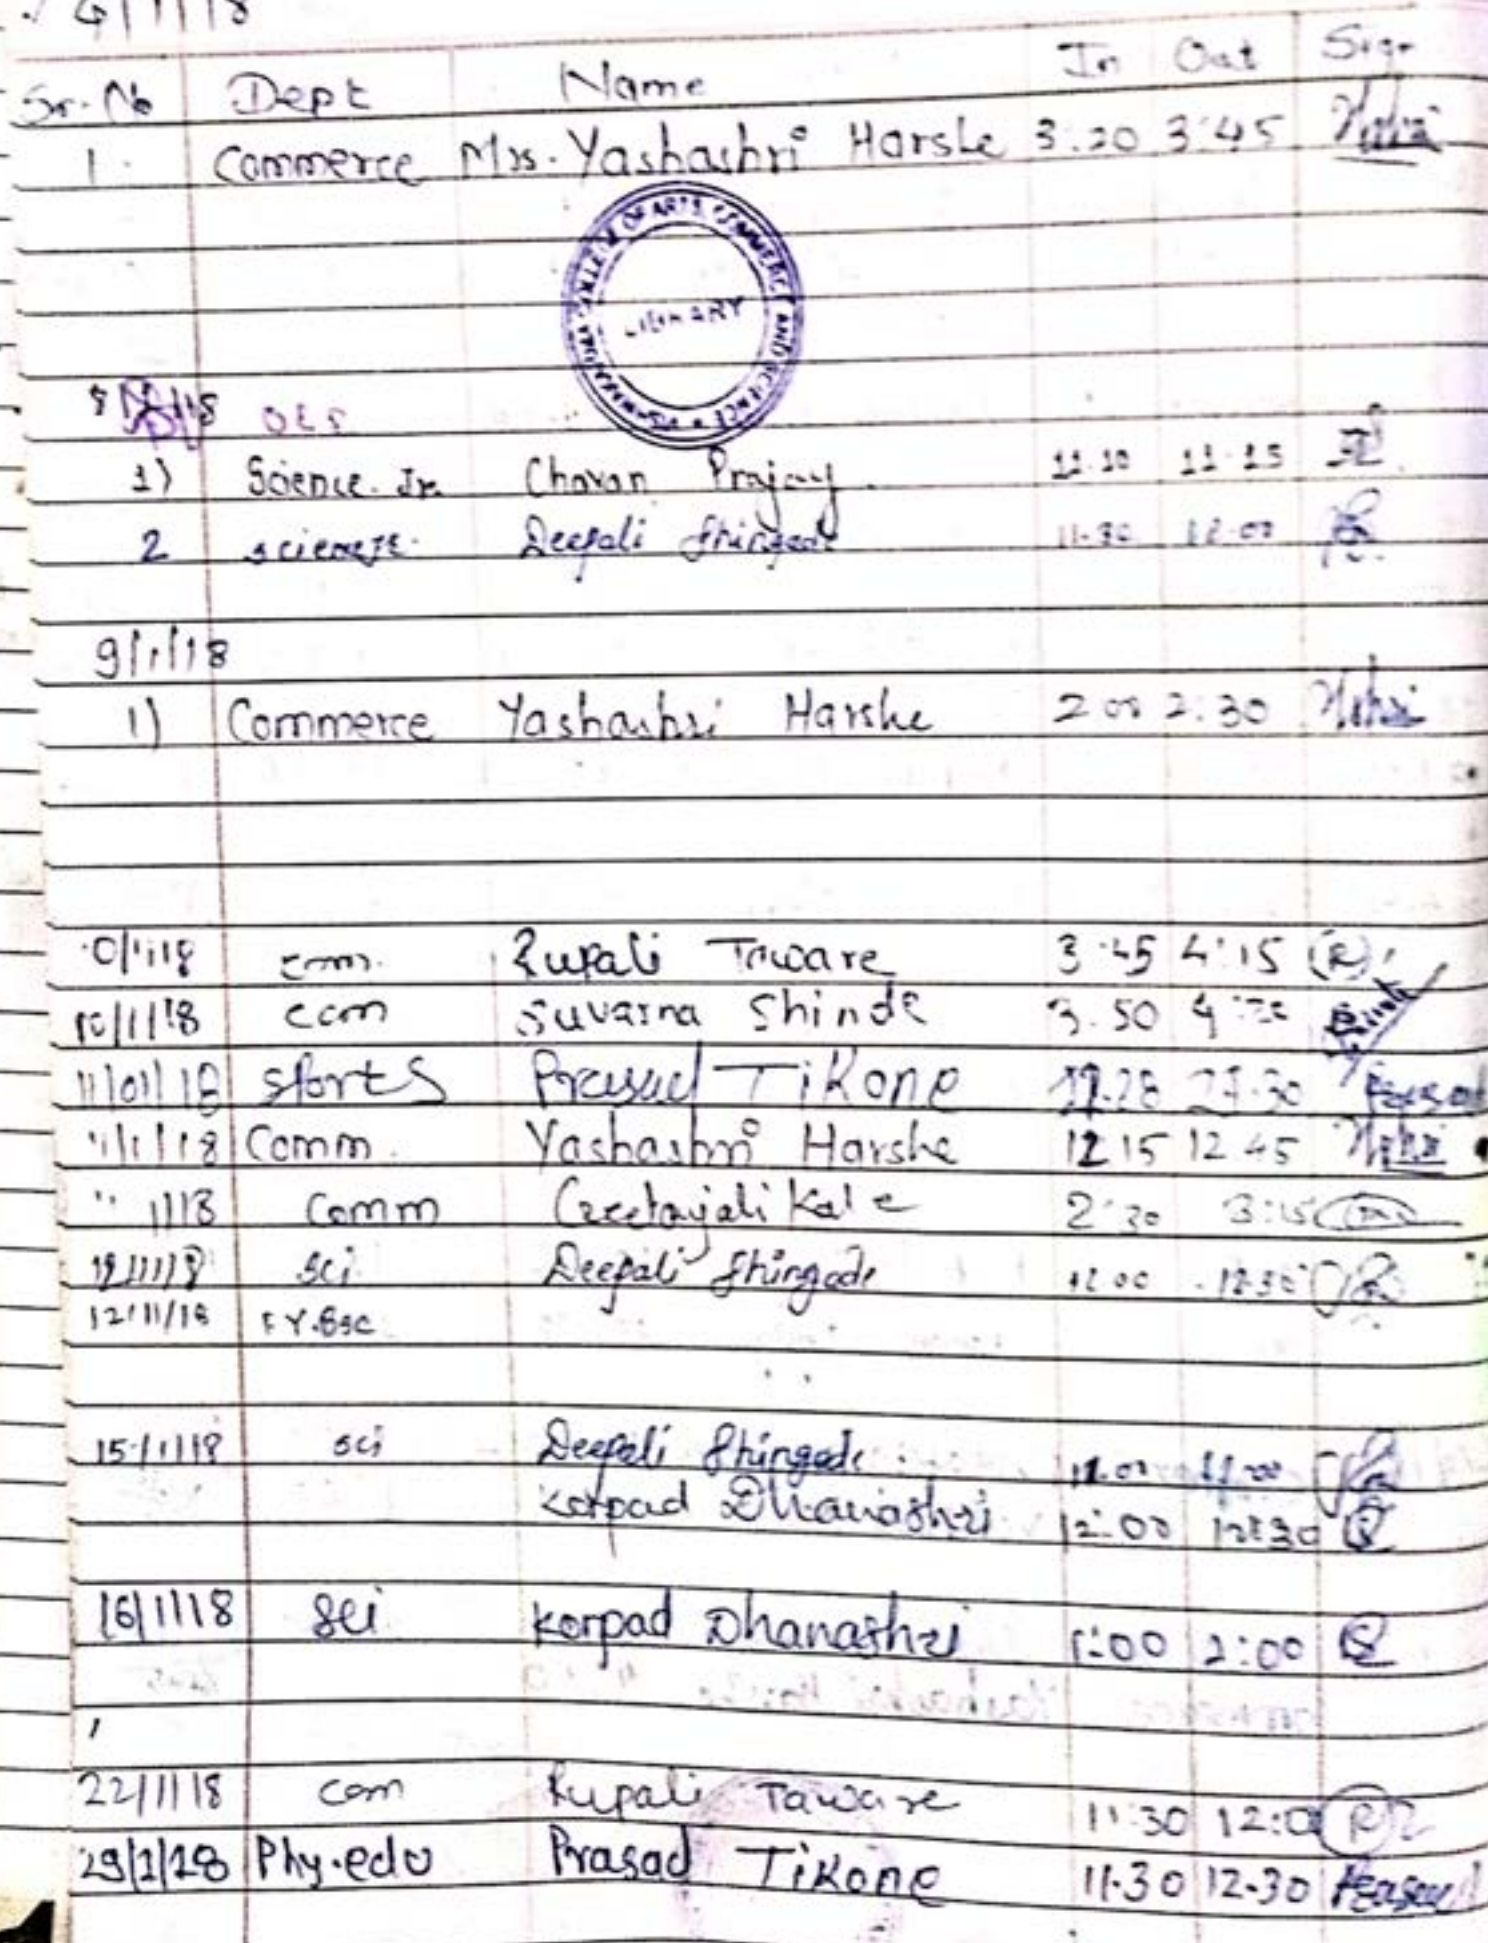 4/1/18
Sr. No Dept Name In Out Sign
1. Commerce Mrs. Yashashri Harshe 3:20 3:45
COLLEGE OF ARTS, COMMERCE AND SCIENCE
LIBRARY
1) Science. Jr. Chavan Prajay. 11.10 11.15
2 science Deepali Shingade 11.30 12.00
9/1/18
1) Commerce Yashashri Harshe 2 00 2:30
0/1/18 com. Rupali Taware 3:45 4:15 (R)
10/1/18 com Suvarna Shinde 3.50
11/01/18 sports Prasad Tikone Prasad
11/1/18 Comm. Yashashri Harshe 12 15 12 45
" 1/18 Comm Geetajali Kale 2:30 3:15
12/1/18 sci Deepali Shingade 12.00 12.30
12/11/18 F Y.Bsc
15/1/18 sci Deepali Shingade
Korpad Dhanashri 12:00 12:30
16/1/18 sci Korpad Dhanashri 1:00 2:00
22/1/18 com Rupali Taware 11:30 12:0 R
29/1/18 Phy.edu Prasad Tikone 11.30 12.30 Prasad